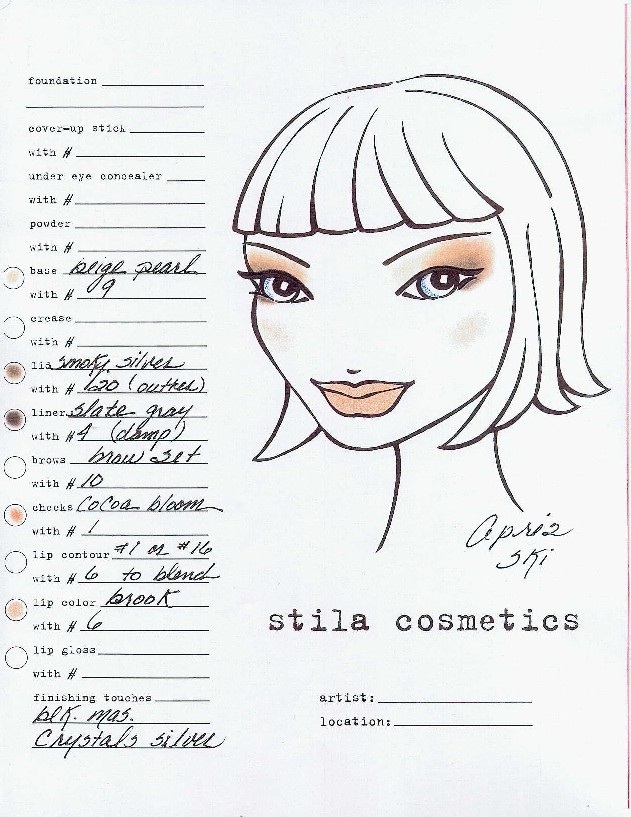 foundation
cover-up stick
with #
under eye concealer
with #
powder
with #
base beige pearl
with # 9
crease
with #
lid smoky silver
with # 1620 (outter)
liner slate gray
with # 4 (damp)
brows brow set
with # 10
cheeks cocoa bloom
with # 1
lip contour #1 or #16
with # 6 to blend
lip color brook
with # 6
lip gloss
with #
finishing touches
blk. mas.
Crystals silver
Aprés
Ski
stila cosmetics
artist:
location: